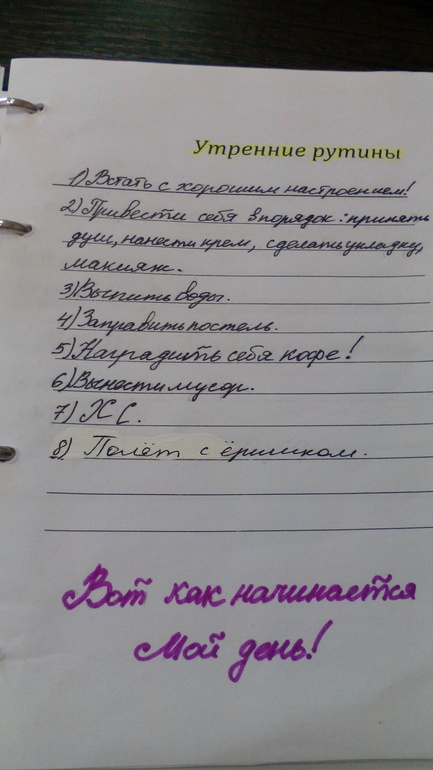 Утренние рутины
1) Встать с хорошим настроением!
2) Привести себя в порядок: принять
душ, нанести крем, сделать укладку,
макияж.
3) Выпить воды.
4) Заправить постель.
5) Наградить себя кофе!
6) Вынести мусор.
7) ХС.
8) Полёт с ёршиком.
Вот как начинается
Мой день!